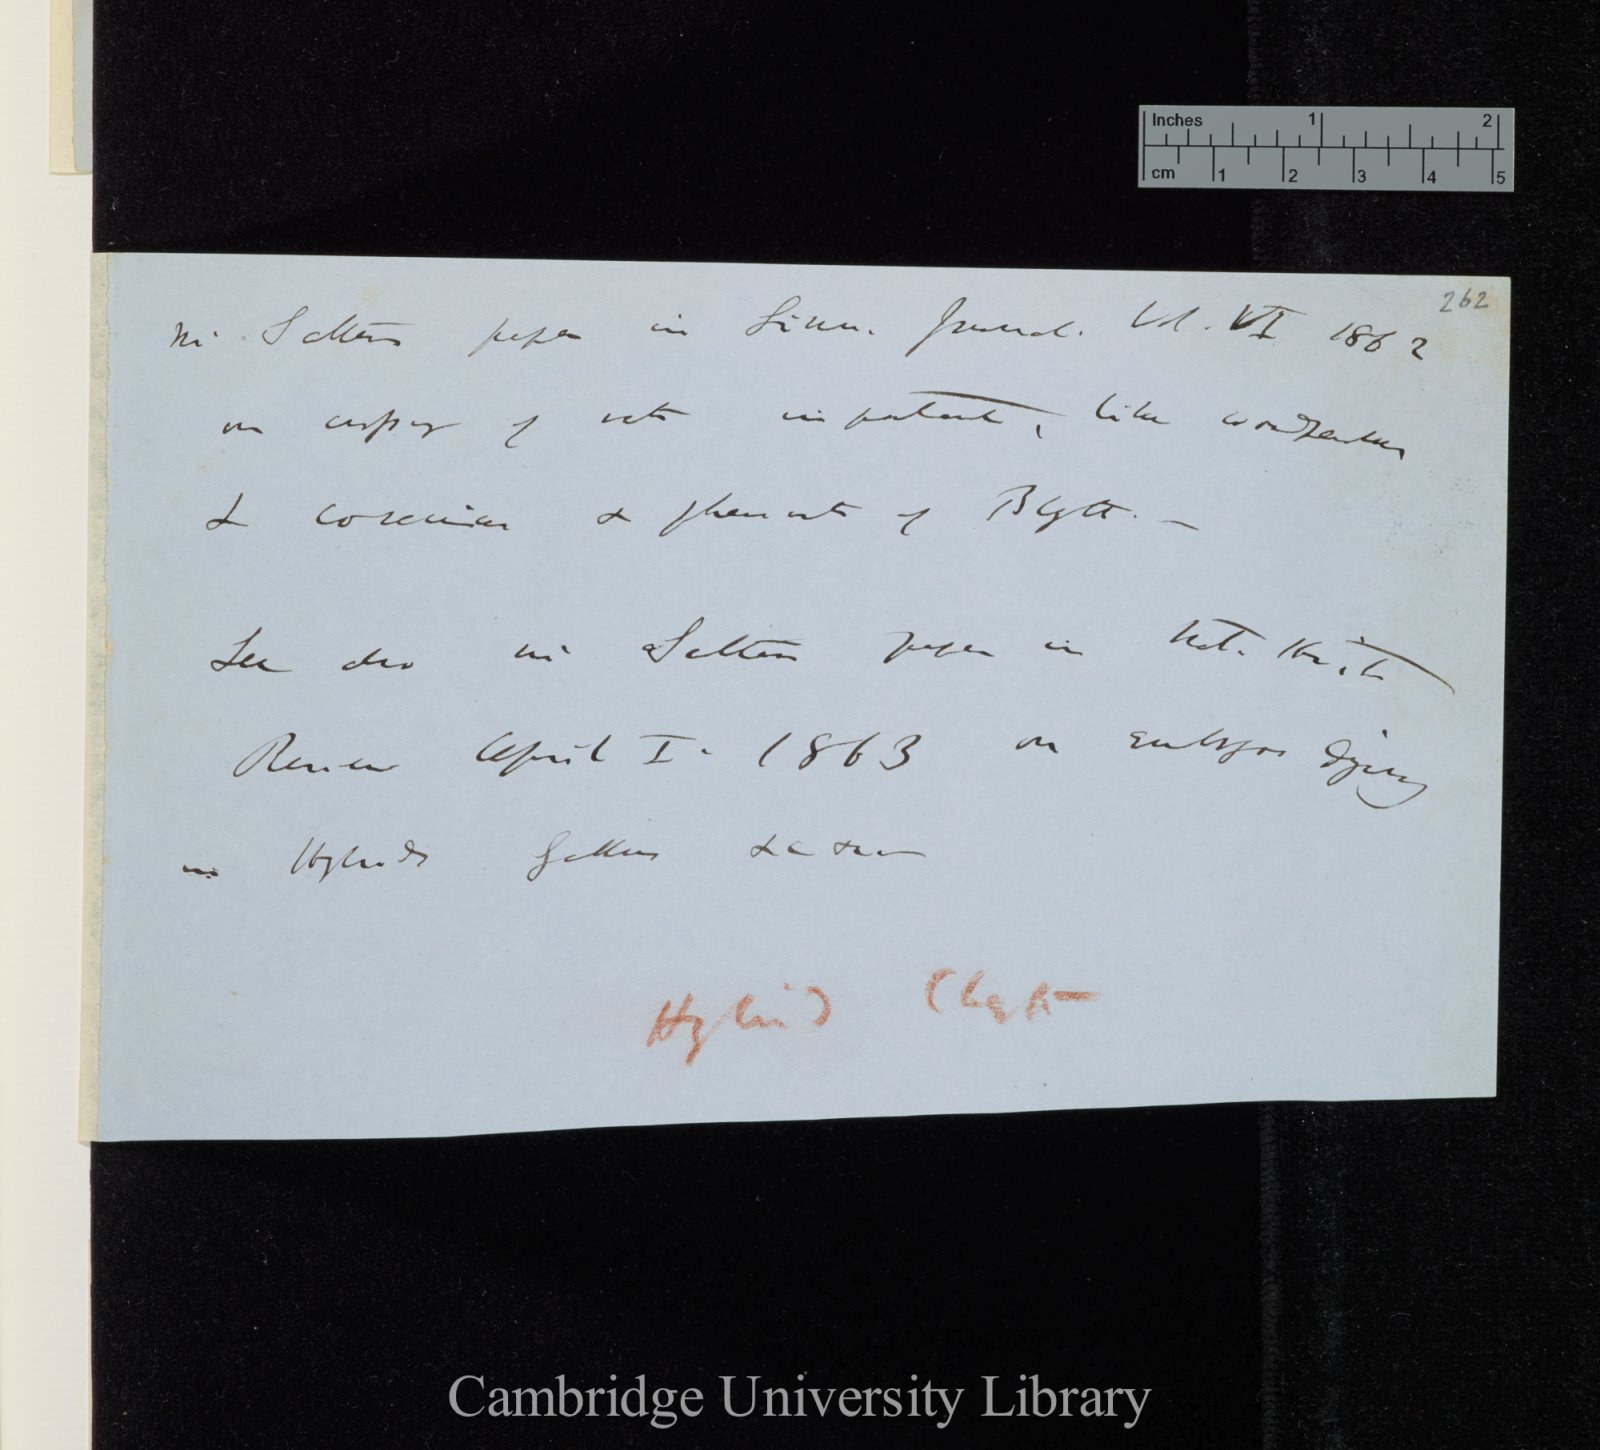 Inches 1 2
cm 1 2 3 4 5
262
Mr Salter's paper in Linn. Journal. Vol. VI 1862
on crossing of important, like
& & pheasants of Blyth. —
See also Mr Salter's paper in Nat. Hist.
Review April I. 1863 on embryos dying
in Hybrids Gallus
Hybrid Chapt
Cambridge University Library